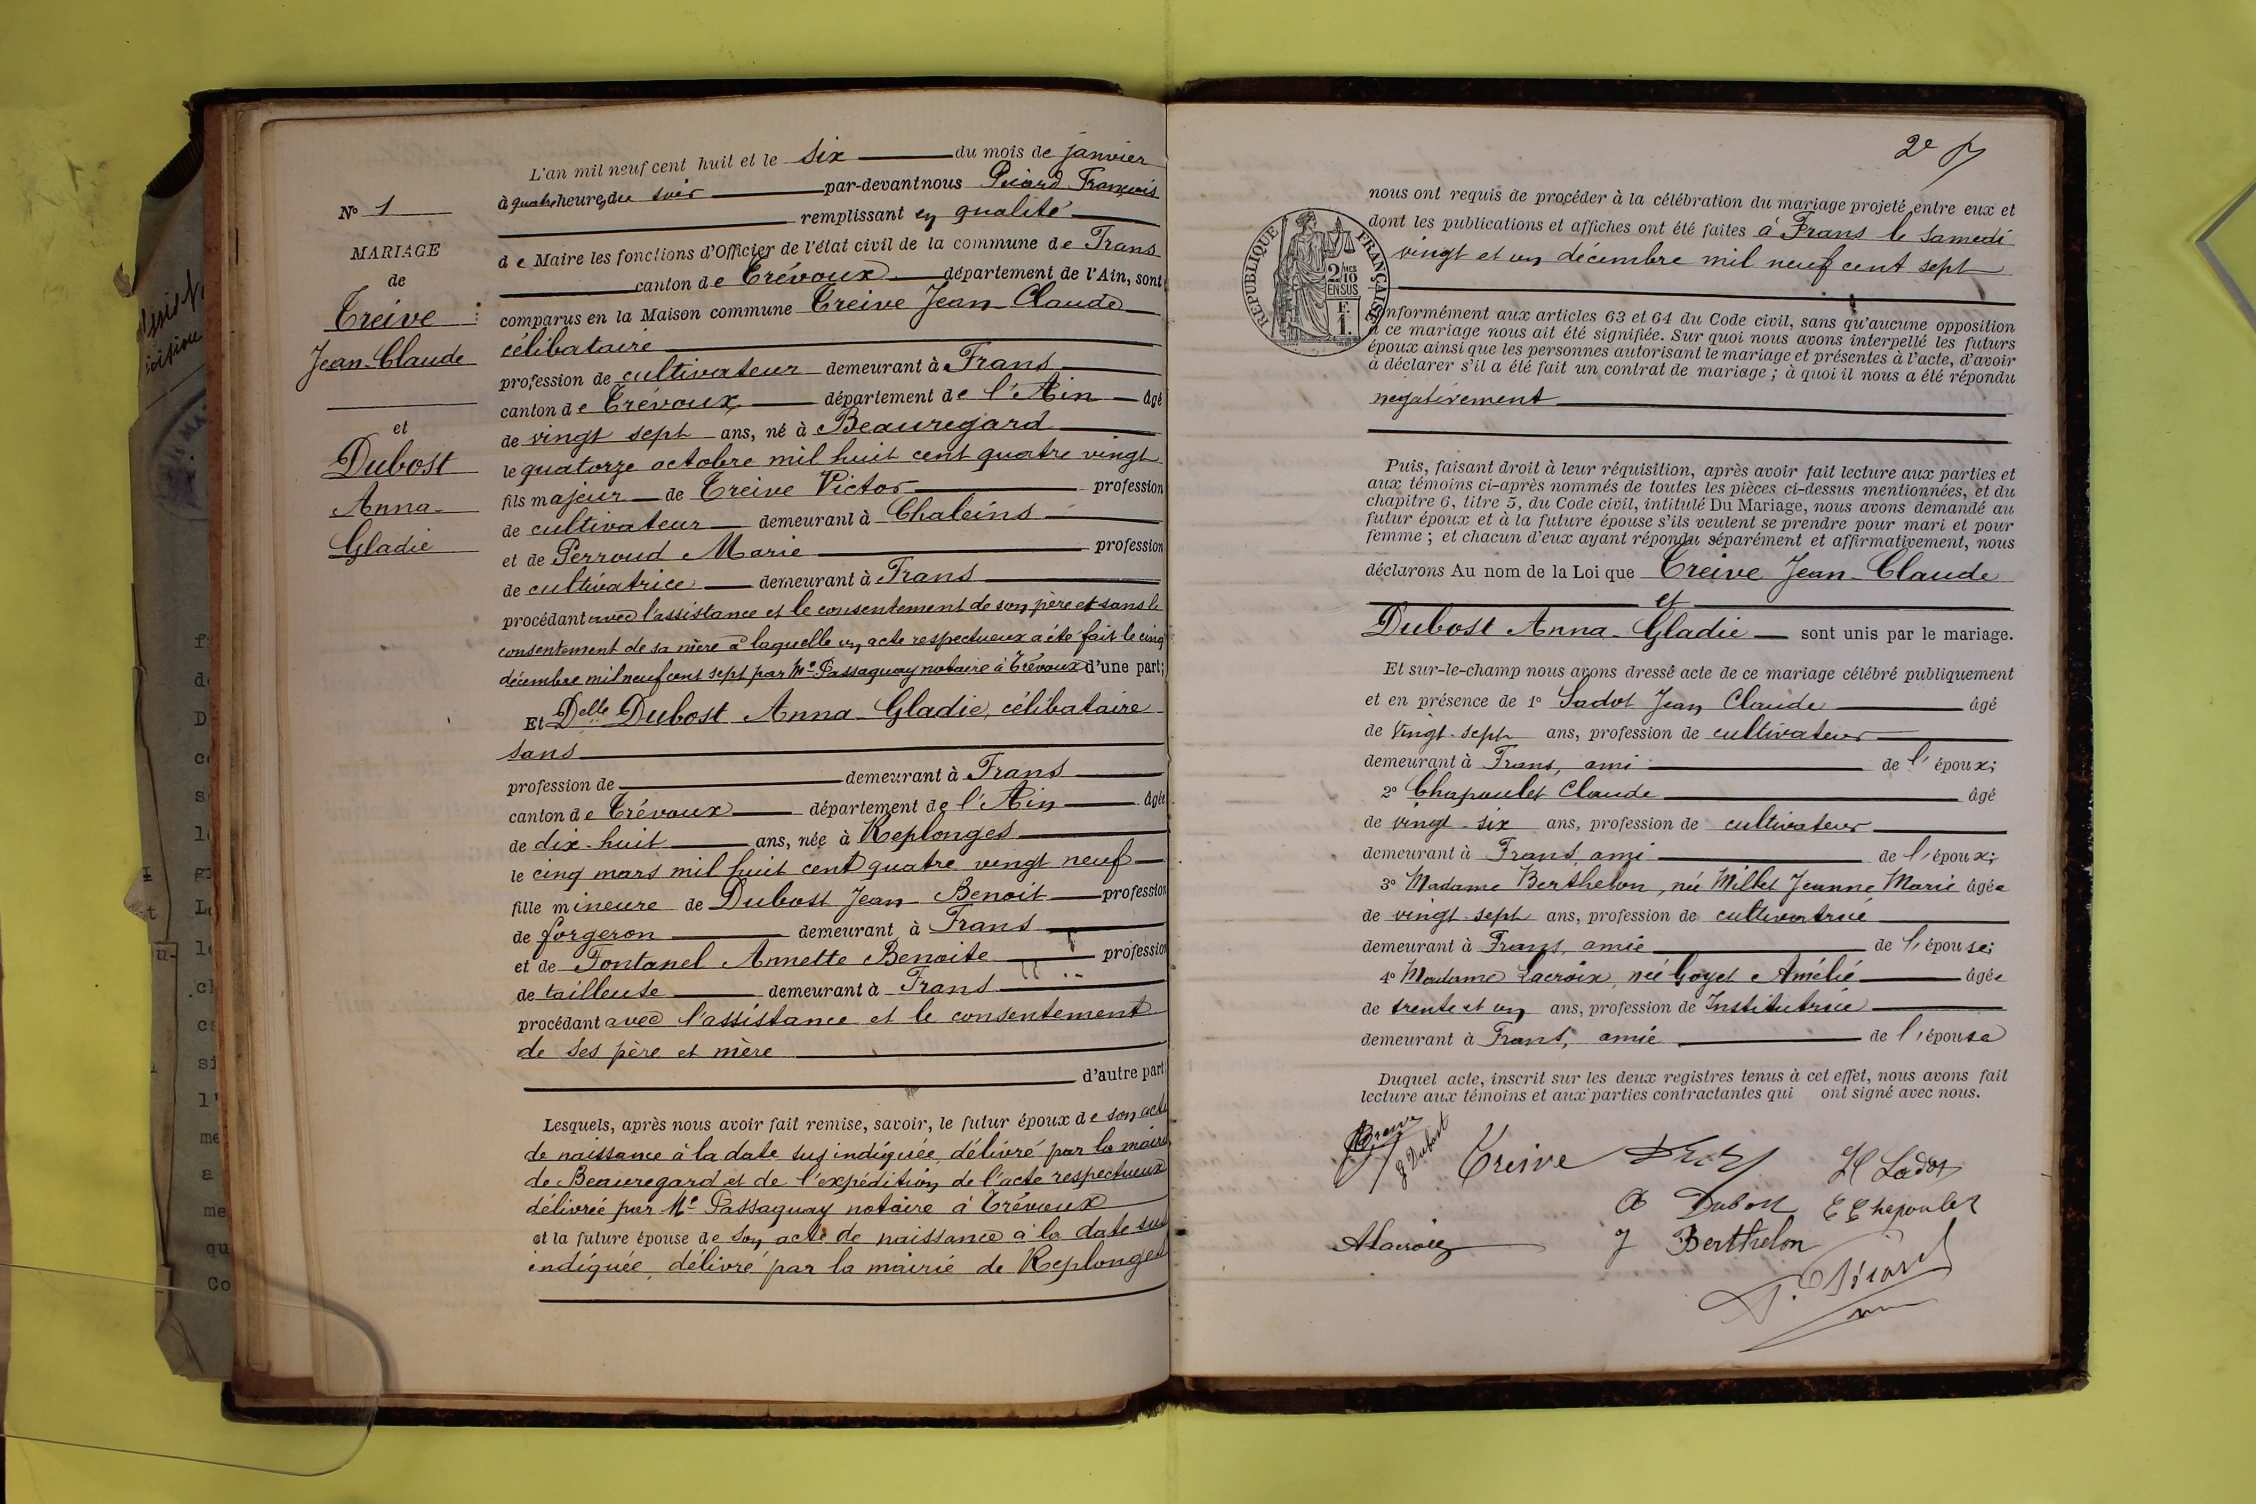 N° 1
MARIAGE
de
Treive
Jean-Claude
et
Dubost
Anna-
Gladie
L'an mil neuf cent huit et le six du mois de janvier
à quatre heures du soir par-devant nous Piéard François
remplissant en qualité
de Maire les fonctions d'Officier de l'état civil de la commune de Frans
canton de Trévoux département de l'Ain, sont
comparus en la Maison commune Treive Jean-Claude
célibataire
profession de cultivateur demeurant à Frans
canton de Trévoux département de l'Ain âgé
de vingt sept ans, né à Beauregard
le quatorze octobre mil huit cent quatre vingt
fils majeur de Treive Victor profession
de cultivateur demeurant à Chaleins
et de Perroud Marie profession
de cultivatrice demeurant à Frans
procédant avec l'assistance et le consentement de son père et sans le
consentement de sa mère à laquelle un acte respectueux a été fait le cinq
décembre mil neuf cent sept par Me Passaquay notaire à Trévoux d'une part;
Et Delle Dubost Anna-Gladie, célibataire
sans
profession de demeurant à Frans
canton de Trévoux département de l'Ain âgée
de dix-huit ans, née à Replonges
le cinq mars mil huit cent quatre vingt neuf
fille mineure de Dubost Jean Benoit profession
de forgeron demeurant à Frans
et de Fontanel Annette Benoite profession
de tailleuse demeurant à Frans
procédant avec l'assistance et le consentement
de ses père et mère
d'autre part
Lesquels, après nous avoir fait remise, savoir, le futur époux de son acte
de naissance à la date sus indiquée, délivré par la mairie
de Beauregard et de l'expédition de l'acte respectueux
délivrée par Me Passaquay notaire à Trévoux
et la future épouse de son acte de naissance à la date sus
indiquée, délivré par la mairie de Replonges
2e
RÉPUBLIQUE FRANÇAISE
2/10 EN SUS
F. 1.
nous ont requis de procéder à la célébration du mariage projeté entre eux et
dont les publications et affiches ont été faites à Frans le samedi
vingt et un décembre mil neuf cent sept
conformément aux articles 63 et 64 du Code civil, sans qu'aucune opposition
à ce mariage nous ait été signifiée. Sur quoi nous avons interpellé les futurs
époux ainsi que les personnes autorisant le mariage et présentes à l'acte, d'avoir
à déclarer s'il a été fait un contrat de mariage; à quoi il nous a été répondu
négativement
Puis, faisant droit à leur réquisition, après avoir fait lecture aux parties et
aux témoins ci-après nommés de toutes les pièces ci-dessus mentionnées, et du
chapitre 6, titre 5, du Code civil, intitulé Du Mariage, nous avons demandé au
futur époux et à la future épouse s'ils veulent se prendre pour mari et pour
femme; et chacun d'eux ayant répondu séparément et affirmativement, nous
déclarons Au nom de la Loi que Treive Jean-Claude
et
Dubost Anna-Gladie sont unis par le mariage.
Et sur-le-champ nous avons dressé acte de ce mariage célébré publiquement
et en présence de 1° Sadot Jean Claude âgé
de vingt-sept ans, profession de cultivateur
demeurant à Frans, ami de l'époux;
2° Chapoulet Claude âgé
de vingt-six ans, profession de cultivateur
demeurant à Frans, ami de l'époux;
3° Madame Berthelon, née Millet Jeanne Marie âgée
de vingt-sept ans, profession de cultivatrice
demeurant à Frans, amie de l'épouse;
4° Madame Lacroix, née Goyet Amélie âgée
de trente et un ans, profession de Institutrice
demeurant à Frans, amie de l'épouse
Duquel acte, inscrit sur les deux registres tenus à cet effet, nous avons fait
lecture aux témoins et aux parties contractantes qui ont signé avec nous.
Dubost
Treive
A Dubost
ALacroix
J Berthelon